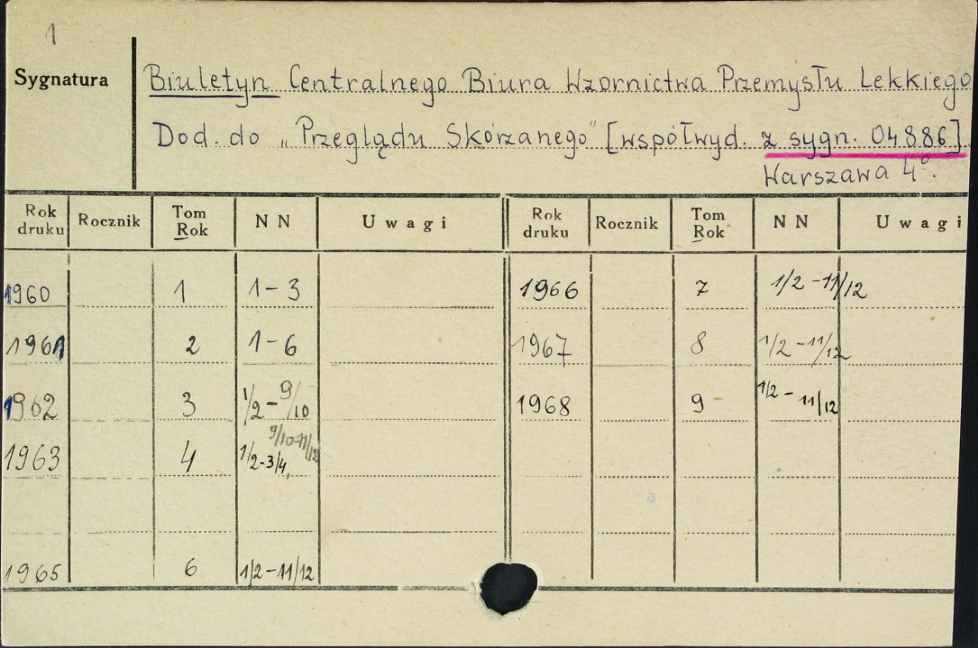 1
Sygnatura
Biuletyn Centralnego Biura Wzornictwa Przemysłu Lekkiego
Dod. do „Przeglądu Skórzanego" [współwyd. z sygn. 04886]
Warszawa 4°.
Rok druku Rocznik Tom Rok NN Uwagi Rok druku Rocznik Tom Rok NN Uwagi
1960 1 1-3 1966 7 1/2-11/12
1961 2 1-6 1967 8 1/2-11/12
1962 3 1/2-9/10 1968 9 1/2-11/12
1963 4 1/2-3/4, 9/10-11/12
1965 6 1/2-11/12